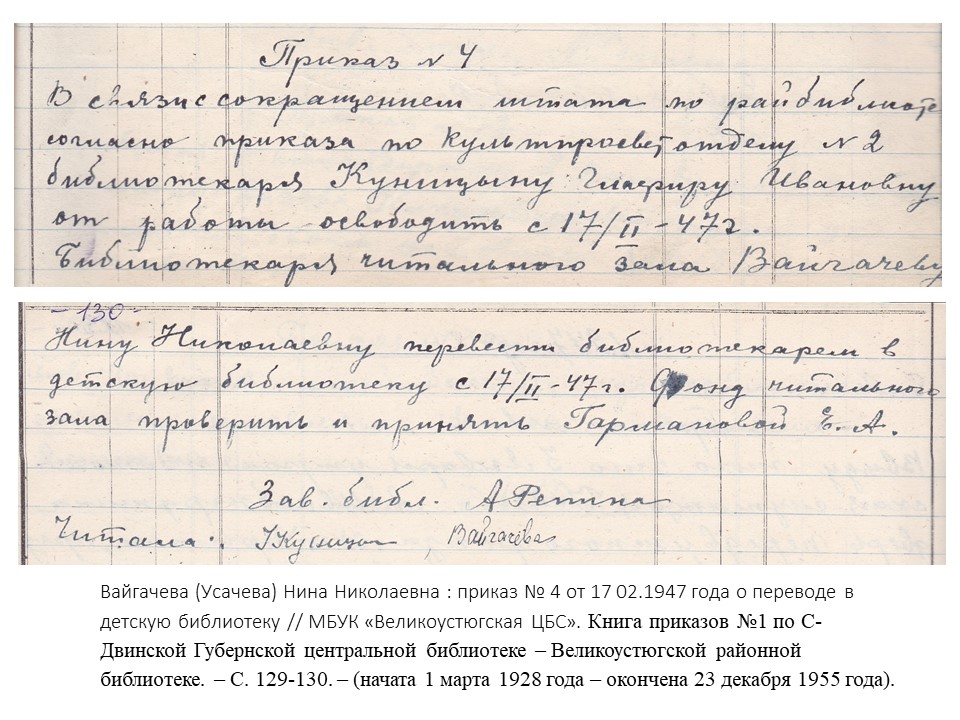 Приказ № 4
В связи с сокращением штата по райбиблиоте
согласно приказа по культпросветотделу № 2
библиотекаря Куницыну Глафиру Ивановну
от работы освободить с 17/II-47г.
Библиотекаря читального зала Вайгачеву
- 130 -
Нину Николаевну перевести библиотекарем в
детскую библиотеку с 17/II-47г. Фонд читального
зала проверить и принять Гармановой Е. А.
Зав. библ. АРепина
Читала: Вайгачева
Вайгачева (Усачева) Нина Николаевна : приказ № 4 от 17 02.1947 года о переводе в
детскую библиотеку // МБУК «Великоустюгская ЦБС». Книга приказов №1 по С-
Двинской Губернской центральной библиотеке – Великоустюгской районной
библиотеке. – С. 129-130. – (начата 1 марта 1928 года – окончена 23 декабря 1955 года).